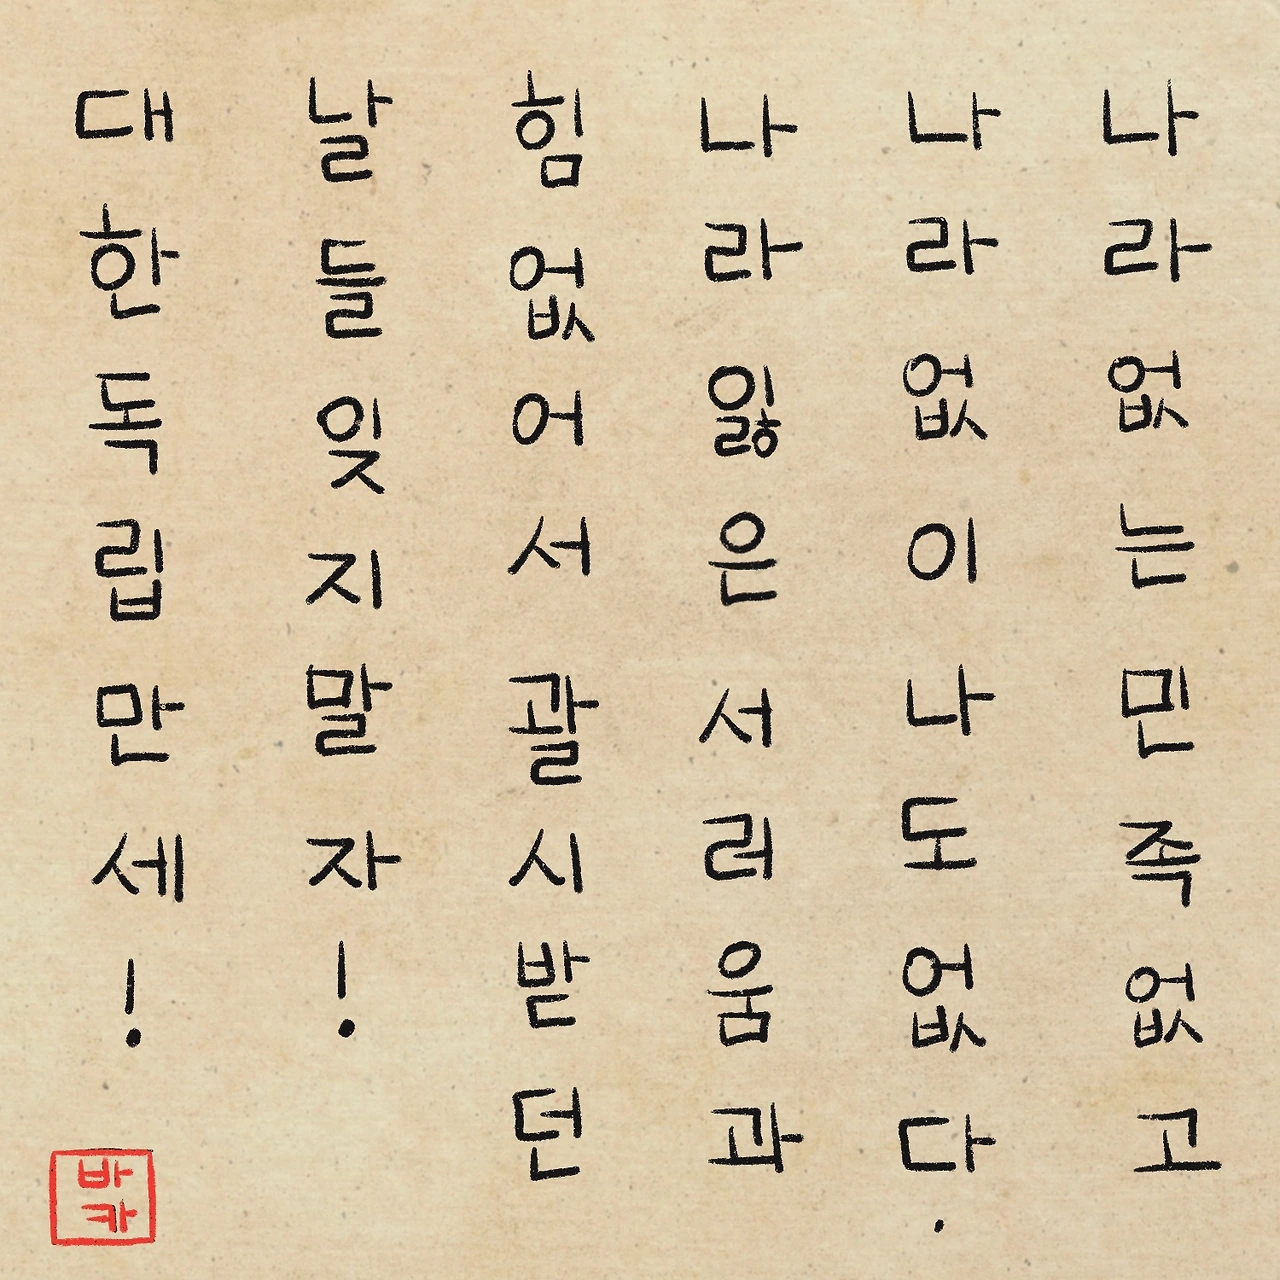 나라없는민족없고
나라없이나도없다.
나라잃은서러움과
힘없어서괄시받던
날들잊지말자!
대한독립만세!
바카